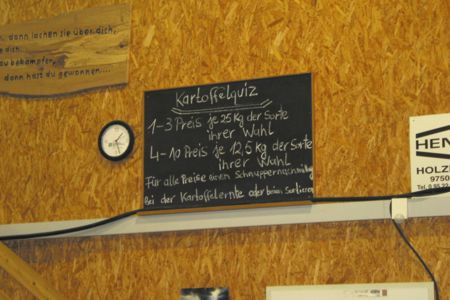 , dann lachen sie über dich,
dich...
zu bekämpfen,
dann hast du gewonnen....
Kartoffelquiz
1-3 Preis je 25 Kg der Sorte
ihrer Wahl
4-10 Preis je 12,5 kg der Sorte
ihrer Wahl
Für alle Preise einen Schnuppernachmittag
Bei der Kartoffelernte oder beim Sortieren
HEN
HOLZ
9750
Tel. 0